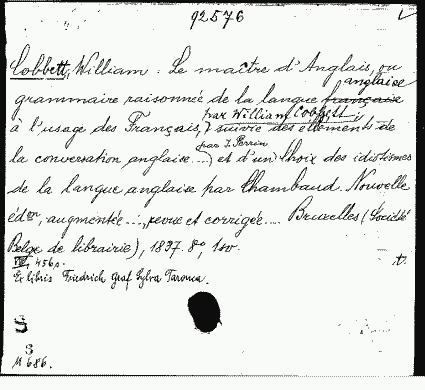 92576
Cobbett, William: Le maître d'Anglais, ou
grammaire raisonnée de la langue française anglaise
à l'usage des Français, par William Cobbett, suivie des éléments de
la conversation anglaise... par J. Perrin et d'un Choix des idiotismes
de la langue anglaise par Chambaud. Nouvelle
éd., augmentée..., revue et corrigée.... Bruxelles (Société
Belge de librairie), 1837. 8°, 1 v.
456 p. t.
Ex libris Friedrich Graf Sylva Tarouca.
S
S
M 686.